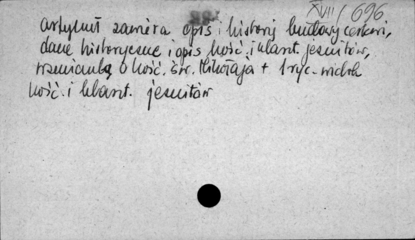 XVII/696
artykuł zawiera opis i historię budowy cerkwi,
dane historyczne i opis kośc. i klaszt. jezuitów,
wzmiankę o kośc. św. Mikołaja + 1 ryc. - widok
kośc. i klaszt. jezuitów